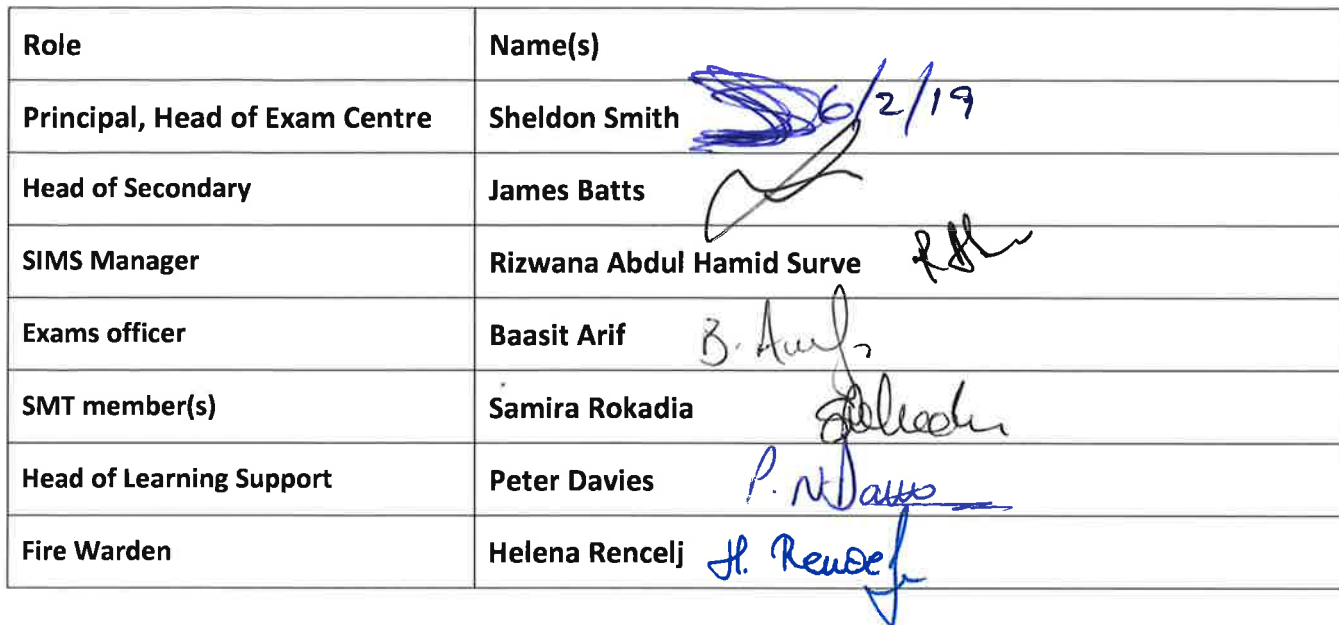 Role Name(s)
Principal, Head of Exam Centre Sheldon Smith 6/2/19
Head of Secondary James Batts
SIMS Manager Rizwana Abdul Hamid Surve
Exams officer Baasit Arif B.
SMT member(s) Samira Rokadia
Head of Learning Support Peter Davies P.
Fire Warden Helena Rencelj H.